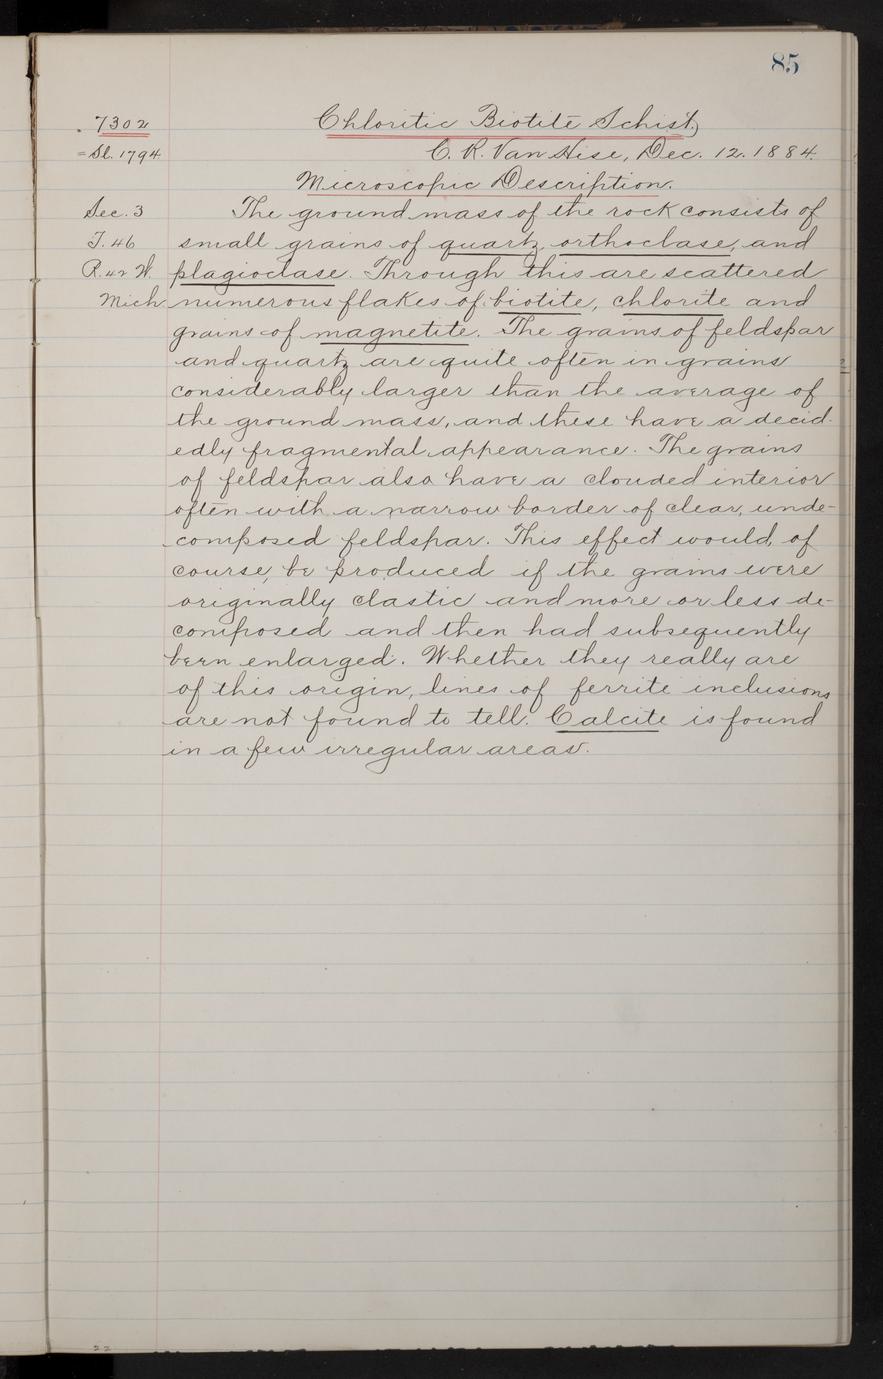 85
7302
Chloritic Biotite Schist,
= Sl. 1794
C. R. Van Hise, Dec. 12. 1884.
Microscopic Description.
Sec. 3
The ground mass of the rock consists of
T. 46
small grains of quartz, orthoclase, and
R. 42 W.
plagioclase. Through this are scattered
Mich.
numerous flakes of biotite, chlorite and
grains of magnetite. The grains of feldspar
and quartz are quite often in grains
considerably larger than the average of
the ground mass, and these have a decid-
edly fragmental appearance. The grains
of feldspar also have a clouded interior
often with a narrow border of clear, unde-
composed feldspar. This effect would, of
course, be produced if the grains were
originally clastic and more or less de-
composed and then had subsequently
been enlarged. Whether they really are
of this origin, lines of ferrite inclusions
are not found to tell. Calcite is found
in a few irregular areas.
22